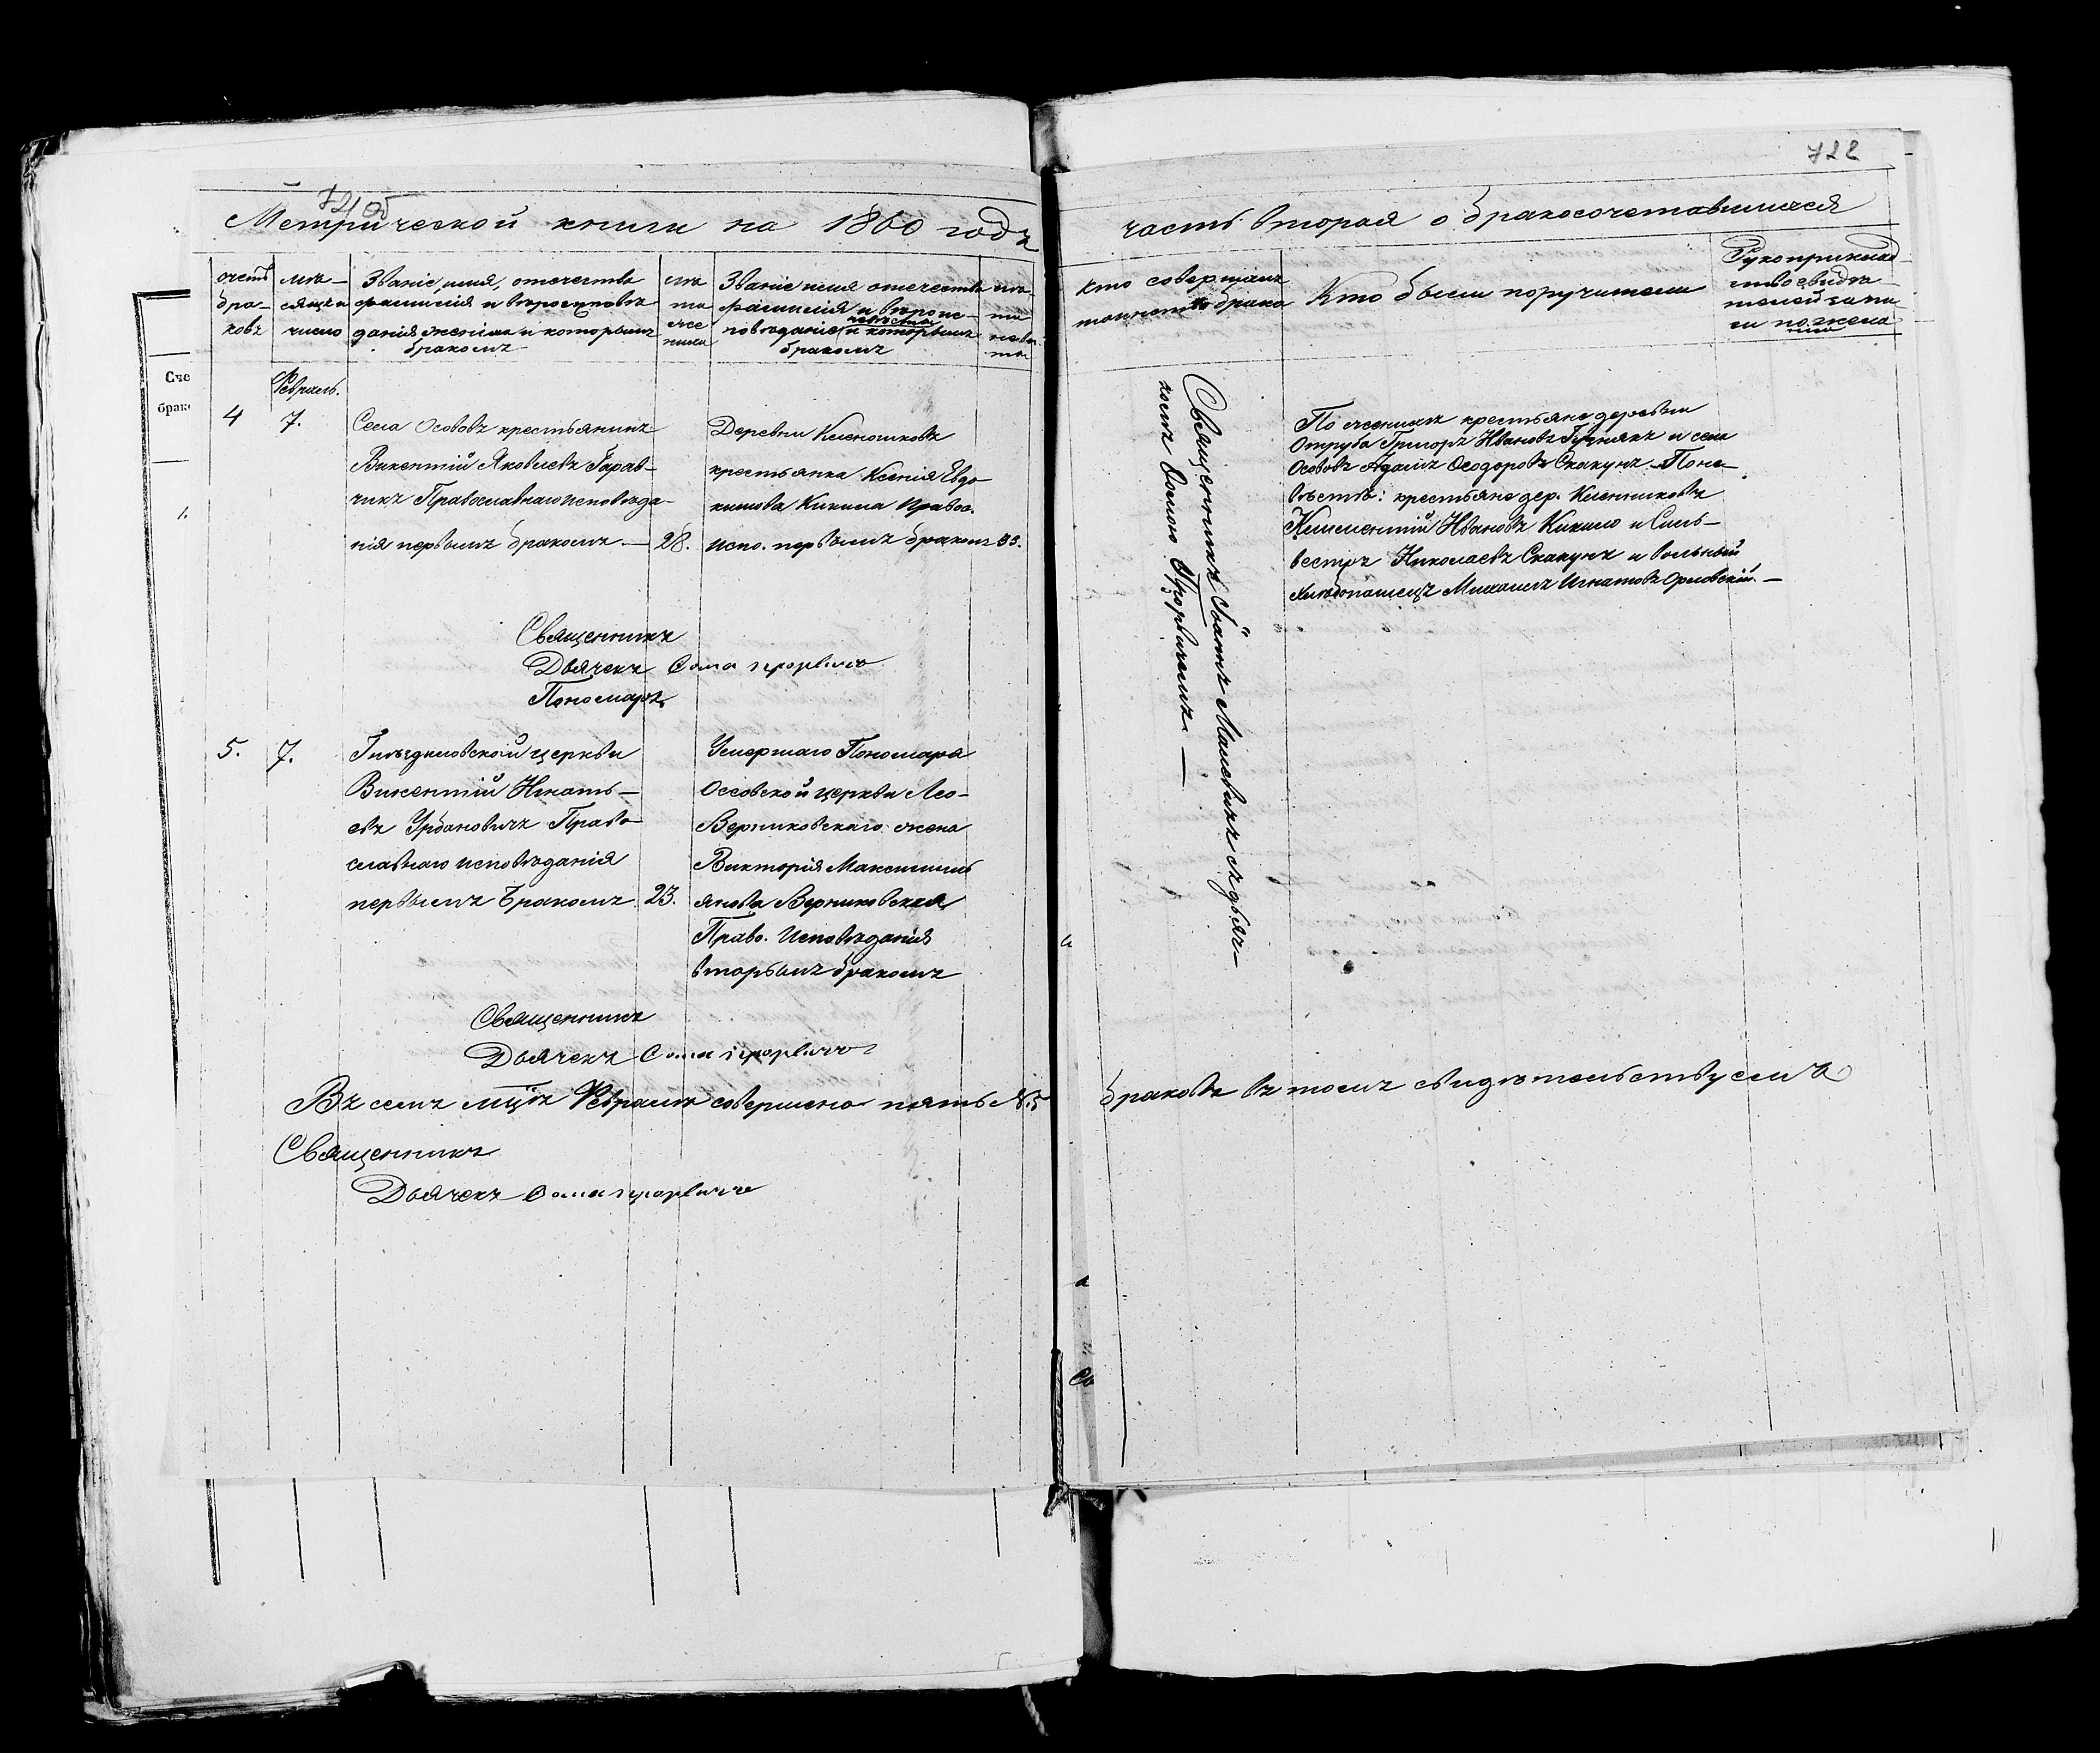 721 об
722
Метрической книги на 1860 годъ
часть вторая о бракосочетавшихся
счетъ
бра-
ковъ
мѣ-
сяцъ и
число
Званіе, имя, отечество
фамилія и вѣроисповѣ
данія жениха и которымъ
бракомъ
лѣ
та
же
ниха
Званіе имя отечество
фамилія и вѣроис-
повѣданіе невѣсты и которымъ
бракомъ
лѣ-
та
невѣ-
сты
Кто совершалъ
таинство брака
Кто были поручители
Рукоприклад-
ство свидѣ-
телей записи
по желанію
Сче
брак
1.
Февраль.
4
7.
Села Осововъ крестьянинъ
Викентій Яковлевъ Гарав-
чикъ Православнаго исповѣда-
нія первымъ бракомъ — 28.
Деревни Кленниковъ
крестьянка Ксенія Евдо
кимова Кикила Правос.
испо. первымъ бракомъ 33.
Священникъ Іоаннъ Малевичъ съ дьяч-
комъ Ѳомою Процевичемъ —
По женихѣ крестьяне деревни
Отруба Григоръ Ивановъ Гузнякъ и села
Осововъ Адамъ Ѳеодоровъ Скакунъ. По не-
вѣстѣ: крестьяне дер. Кленниковъ
Климентій Ивановъ Кикило и Силь-
вестръ Николаевъ Скакунъ и вольный
хлѣбопашецъ Михаилъ Игнатовъ Орловскій. —
Священникъ
Дьячекъ Ѳома
Пономарь
5.
7.
Гнѣздиловской церкви
Викентій Игнать-
евъ Урбановичъ Право
славнаго исповѣданія
первымъ Бракомъ 23.
Умершаго Пономаря
Оссовской церкви Лео-
Верниковскаго жена
Викторія Максимиль
янова Верниковская
Право. Исповѣданія
вторымъ бракомъ
Священникъ
Дьячекъ Ѳома
Въ семъ мцѣ Февралѣ совершено пять №5
браковъ въ томъ свидѣтельствуемъ
Священникъ
Дьячекъ Ѳома